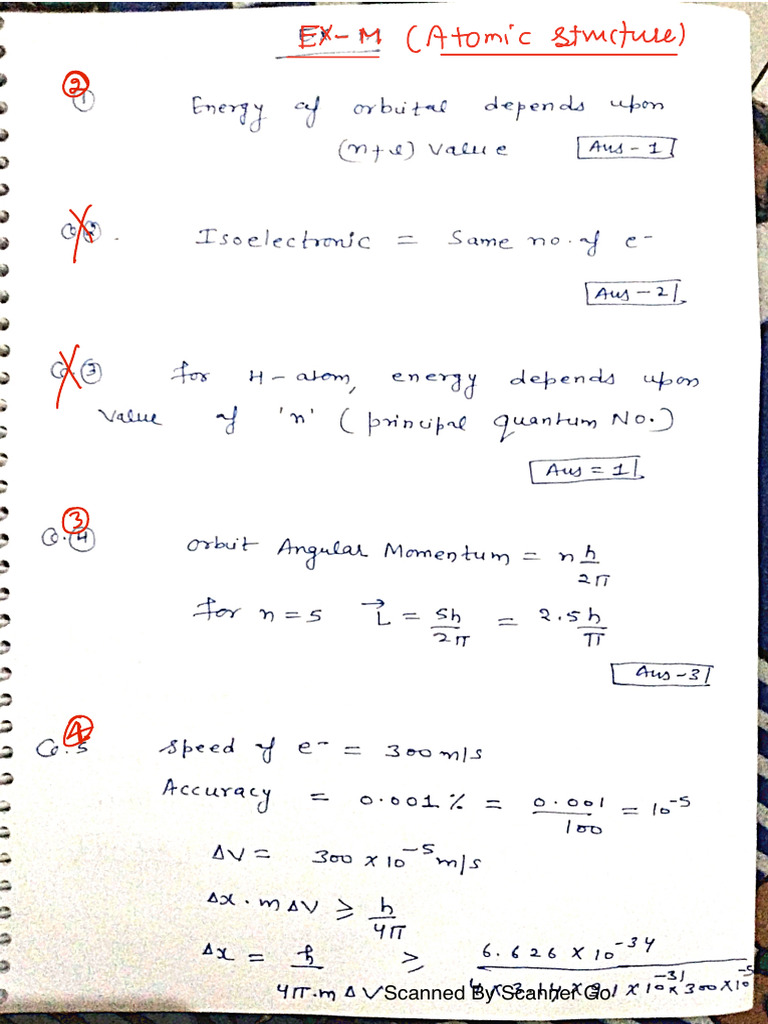 EX-M (Atomic structure)
②
① Energy of orbital depends upon
(n+l) value Ans-1
Q.② . Isoelectronic = Same no. of e-
Ans-2
Q.③ for H-atom, energy depends upon
value of 'n' (principal quantum No.)
Ans=1
③
Q.④ orbit Angular Momentum = n h/2π
for n=5 L⃗ = 5h/2π = 2.5h/π
Ans-3
④
Q.5 speed of e- = 300 m/s
Accuracy = 0.001% = 0.001/100 = 10⁻⁵
ΔV = 300 × 10⁻⁵ m/s
Δx . m ΔV ≥ h/4π
Δx = h/4π.m ΔV ≥ 6.626 × 10⁻³⁴/4×3.14×9.1×10⁻³¹×300×10⁻⁵
Scanned By Scanner Go